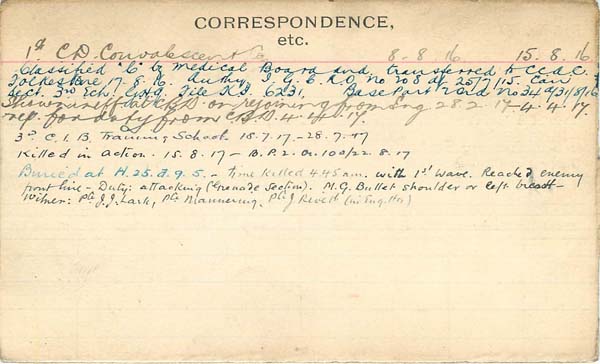 CORRESPONDENCE,
etc.
1st C.D. Convalescent 8-8-16 15.8.16
Classified "C" by Medical Board and transferred to C.C.A.C.
Folkestone 17.8.16. Authy. I.G.C. R.O. No 708 of 25/7/15. Can
Sect. 3rd Ech. G.H.Q. File K.J. 6231, Base Part II Ord No 34
Shown C.B.D. on rejoining from Eng 28.2.17-4.4.17.
rep. for duty from C.B.D. 4.4.17.
3rd C.I.B. Training School. 15.7.17-28.7.17
Killed in action. 15.8.17 - B.P.2. On. 100/22.8.17
Buried at H.25.d.9.5. - Time killed 4.45 am. with 1st wave. Reached enemy
front line - Duty: attacking (Grenade Section). M.G. Bullet shoulder or left breast -
Witness: Pte J.J. Lark, Pte Mannering, Pte J Revett (in Eng. Hos)